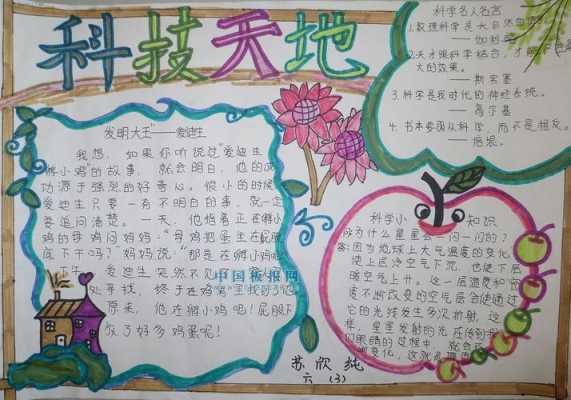 科技天地
发明大王"——爱迪生
我想,如果你听说过"爱迪生
孵小鸡"的故事,就会明白,他的成
功源于强烈的好奇心。很小的时候
爱迪生只要一有不明白的事,就一定
要追问清楚。一天,他指着正在孵小
鸡的母鸡问妈妈:"母鸡把蛋坐在屁股
底下干吗?"妈妈说:"那是在孵小鸡
爱迪生突然不见
处寻找,终于在鸡窝里找到了他
原来,他在孵小鸡呢!屁股下
放了好多鸡蛋呢!
中国板报网
科学名人名言
1.数理科学是大自然
——伽利略
2.天才跟科学结合,才能
大的效果。
——斯宾塞
3.科学是我时代的神经系统。
——高尔基
4.书本要围从科学,而不是相反。
——培根。
科学小知识
问为什么星星会一闪一闪的?
答:因为地球上大气温度的变化,
使上层冷空气下沉,也使下层
暖空气上升。这一层温度和密
度不断改变的空气层会使通过
它的光线发生多次折射,这
样,星星发射的光在传到
们眼睛的过程中,就会
变化,这就是
苏欣纯
六(3)